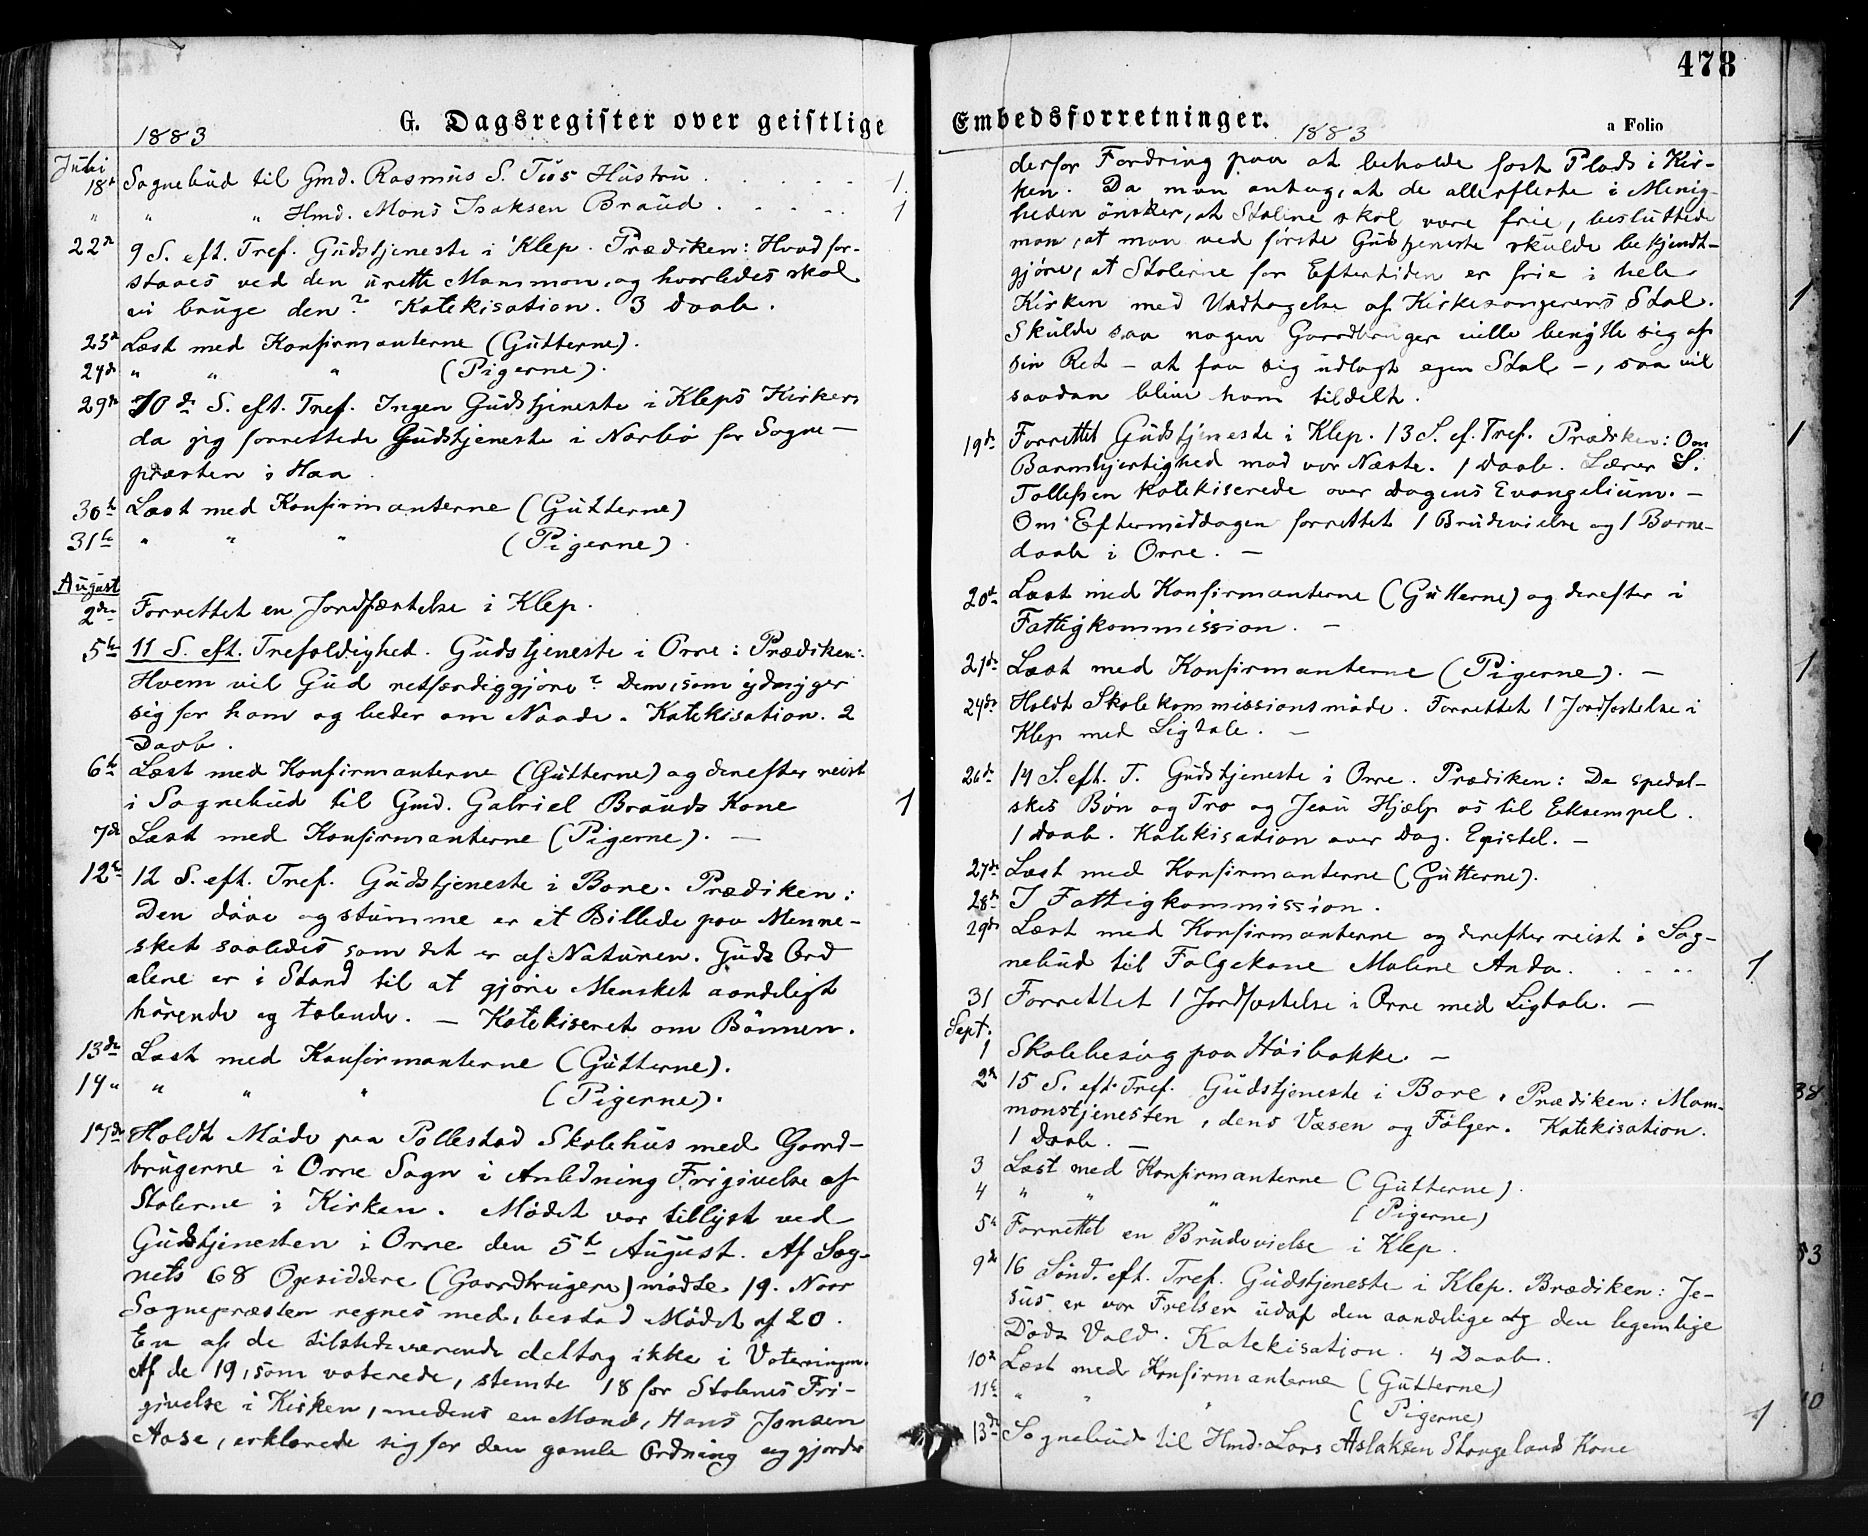 478
G. Dagsregister over geistlige Embedsforretninger.
a Folio
1883
Juli
18de Sognebud til Gmd. Rasmus S. Tus Hustru . . . . . 1
" " " Hmd. Mons Isaksen Braud . . . . . 1
22de 9 S. eft. Tref. Gudstjeneste i Klep. Prædiken: Hvad for-
staaes ved den urette Mammon, og hvorledes skal
vi bruge den? Katekisation. 3 Daab.
23de Læst med Konfirmanterne (Gutterne).
24de " " " (Pigerne).
29de 10de S. eft. Tref. Ingen Gudstjeneste i Kleps Kirker,
da jeg forrettede Gudstjeneste i Nærbø for Sogne-
præsten i Haa.
30te Læst med Konfirmanterne (Gutterne)
31te " " " (Pigerne).
August
2den Forrettet en Jordfæstelse i Klep.
5te 11 S. eft. Trefoldighed. Gudstjeneste i Orre: Prædiken:
Hvem vil Gud retfærdiggjøre? Dem, som ydmyger
sig for ham og beder om Naade. Katekisation. 2
Daab.
6te Læst med Konfirmanterne (Gutterne) og derefter reist
i Sognebud til Gmd. Gabriel Brauds Kone 1
7de Læst med Konfirmanterne (Pigerne). —
12te 12 S. eft. Tref. Gudstjeneste i Bore. Prædiken:
Den døve og stumme er et Billede paa Menne-
sket saaledes som det er af Naturen. Guds Ord
alene er i Stand til at gjøre Mensket aandeligt
hørende og talende. — Katekiseret om Bønnen.
13de Læst med Konfirmanterne (Gutterne).
14" " " " (Pigerne).
17de Holdt Møde paa Pollestad Skolehus med Gaard-
brugerne i Orre Sogn i Anledning Frigivelse af
Stolerne i Kirken. Mødet var tillyst ved
Gudstjenesten i Orre den 5te August. Af Sog-
nets 68 Opsiddere (Gaardbrugere) mødte 19. Naar
Sognepræsten regnes med, bestod Mødet af 20.
En af de tilstedeværende deltog ikke i Voteringen.
Af de 19, som voterede, stemte 18 for Stolenes Fri-
givelse i Kirken, medens en Mand, Hans Jonsen
Aase, erklærede sig for den gamle Ordning og gjorde
1883
derfor Fordring paa at beholde fast Plads i Kir-
ken. Da man antog, at de allerfleste i Menig-
heden ønsker, at Stolene skal være frie, besluttede
man, at man ved første Gudstjeneste skulde bekjendt-
gjøre, at Stolerne for Eftertiden er frie i hele
Kirken med Undtagelse af Kirkesangerens Stol. 1
Skulde saa nogen Gaardbruger ville benytte sig af
sin Ret — at faa sig udlagt egen Stol —, saa vil
saadan blive ham tildelt.
19de Forrettet Gudstjeneste i Klep. 13 S. ef. Tref. Prædiken: Om 1
Barmhjertighed mod vor Næste. 1 Daab. Lærer S.
Tollefsen katekiserede over Dagens Evangelium. —
Om Eftermiddagen forrettet 1 Brudevielse og 1 Barne-
daab i Orre. —
20de Læst med Konfirmanterne (Gutterne) og derefter i
Fattigkommission. —
21de Læst med Konfirmanterne (Pigerne). — 1
24de Holdt Skolekommissionsmøde. Forrettet 1 Jordfæstelse i
Klep med Ligtale. —
26de 14 S. eft. T. Gudstjeneste i Orre. Prædiken: De spedal-
skes Bøn og Tro og Jesu Hjælp os til Eksempel.
1 Daab. Katekisation over Dag. Epistel. —
27de Læst med Konfirmanterne (Gutterne).
28de I Fattigkommission.
29de Læst med Konfirmanterne og derefter reist i Sog-
nebud til Følgekone Malene Anda. . . . . 1
31 Forrettet 1 Jordfæstelse i Orre med Ligtale. —
Sept.
1 Skolebesøg paa Høibakke. —
2den 15 S. eft. Tref. Gudstjeneste i Bore. Prædiken: Mam- 38
monstjenesten, dens Væsen og Følger. Katekisation.
1 Daab. —
3 Læst med Konfirmanterne (Gutterne).
4 " " " (Pigerne)
5te Forrettet en Brudevielse i Klep.
9de 16 Sønd. eft. Tref. Gudstjeneste i Klep. Prædiken: Je- 53
sus er vor Frelser udaf den aandelige og den legemlige
Døds Vold. Katekisation. 4 Daab.
10de Læst med Konfirmanterne (Gutterne)
11te " " " (Pigerne) 10
13de Sognebud til Hmd. Lars Aslaksen Stangelands Kone 1